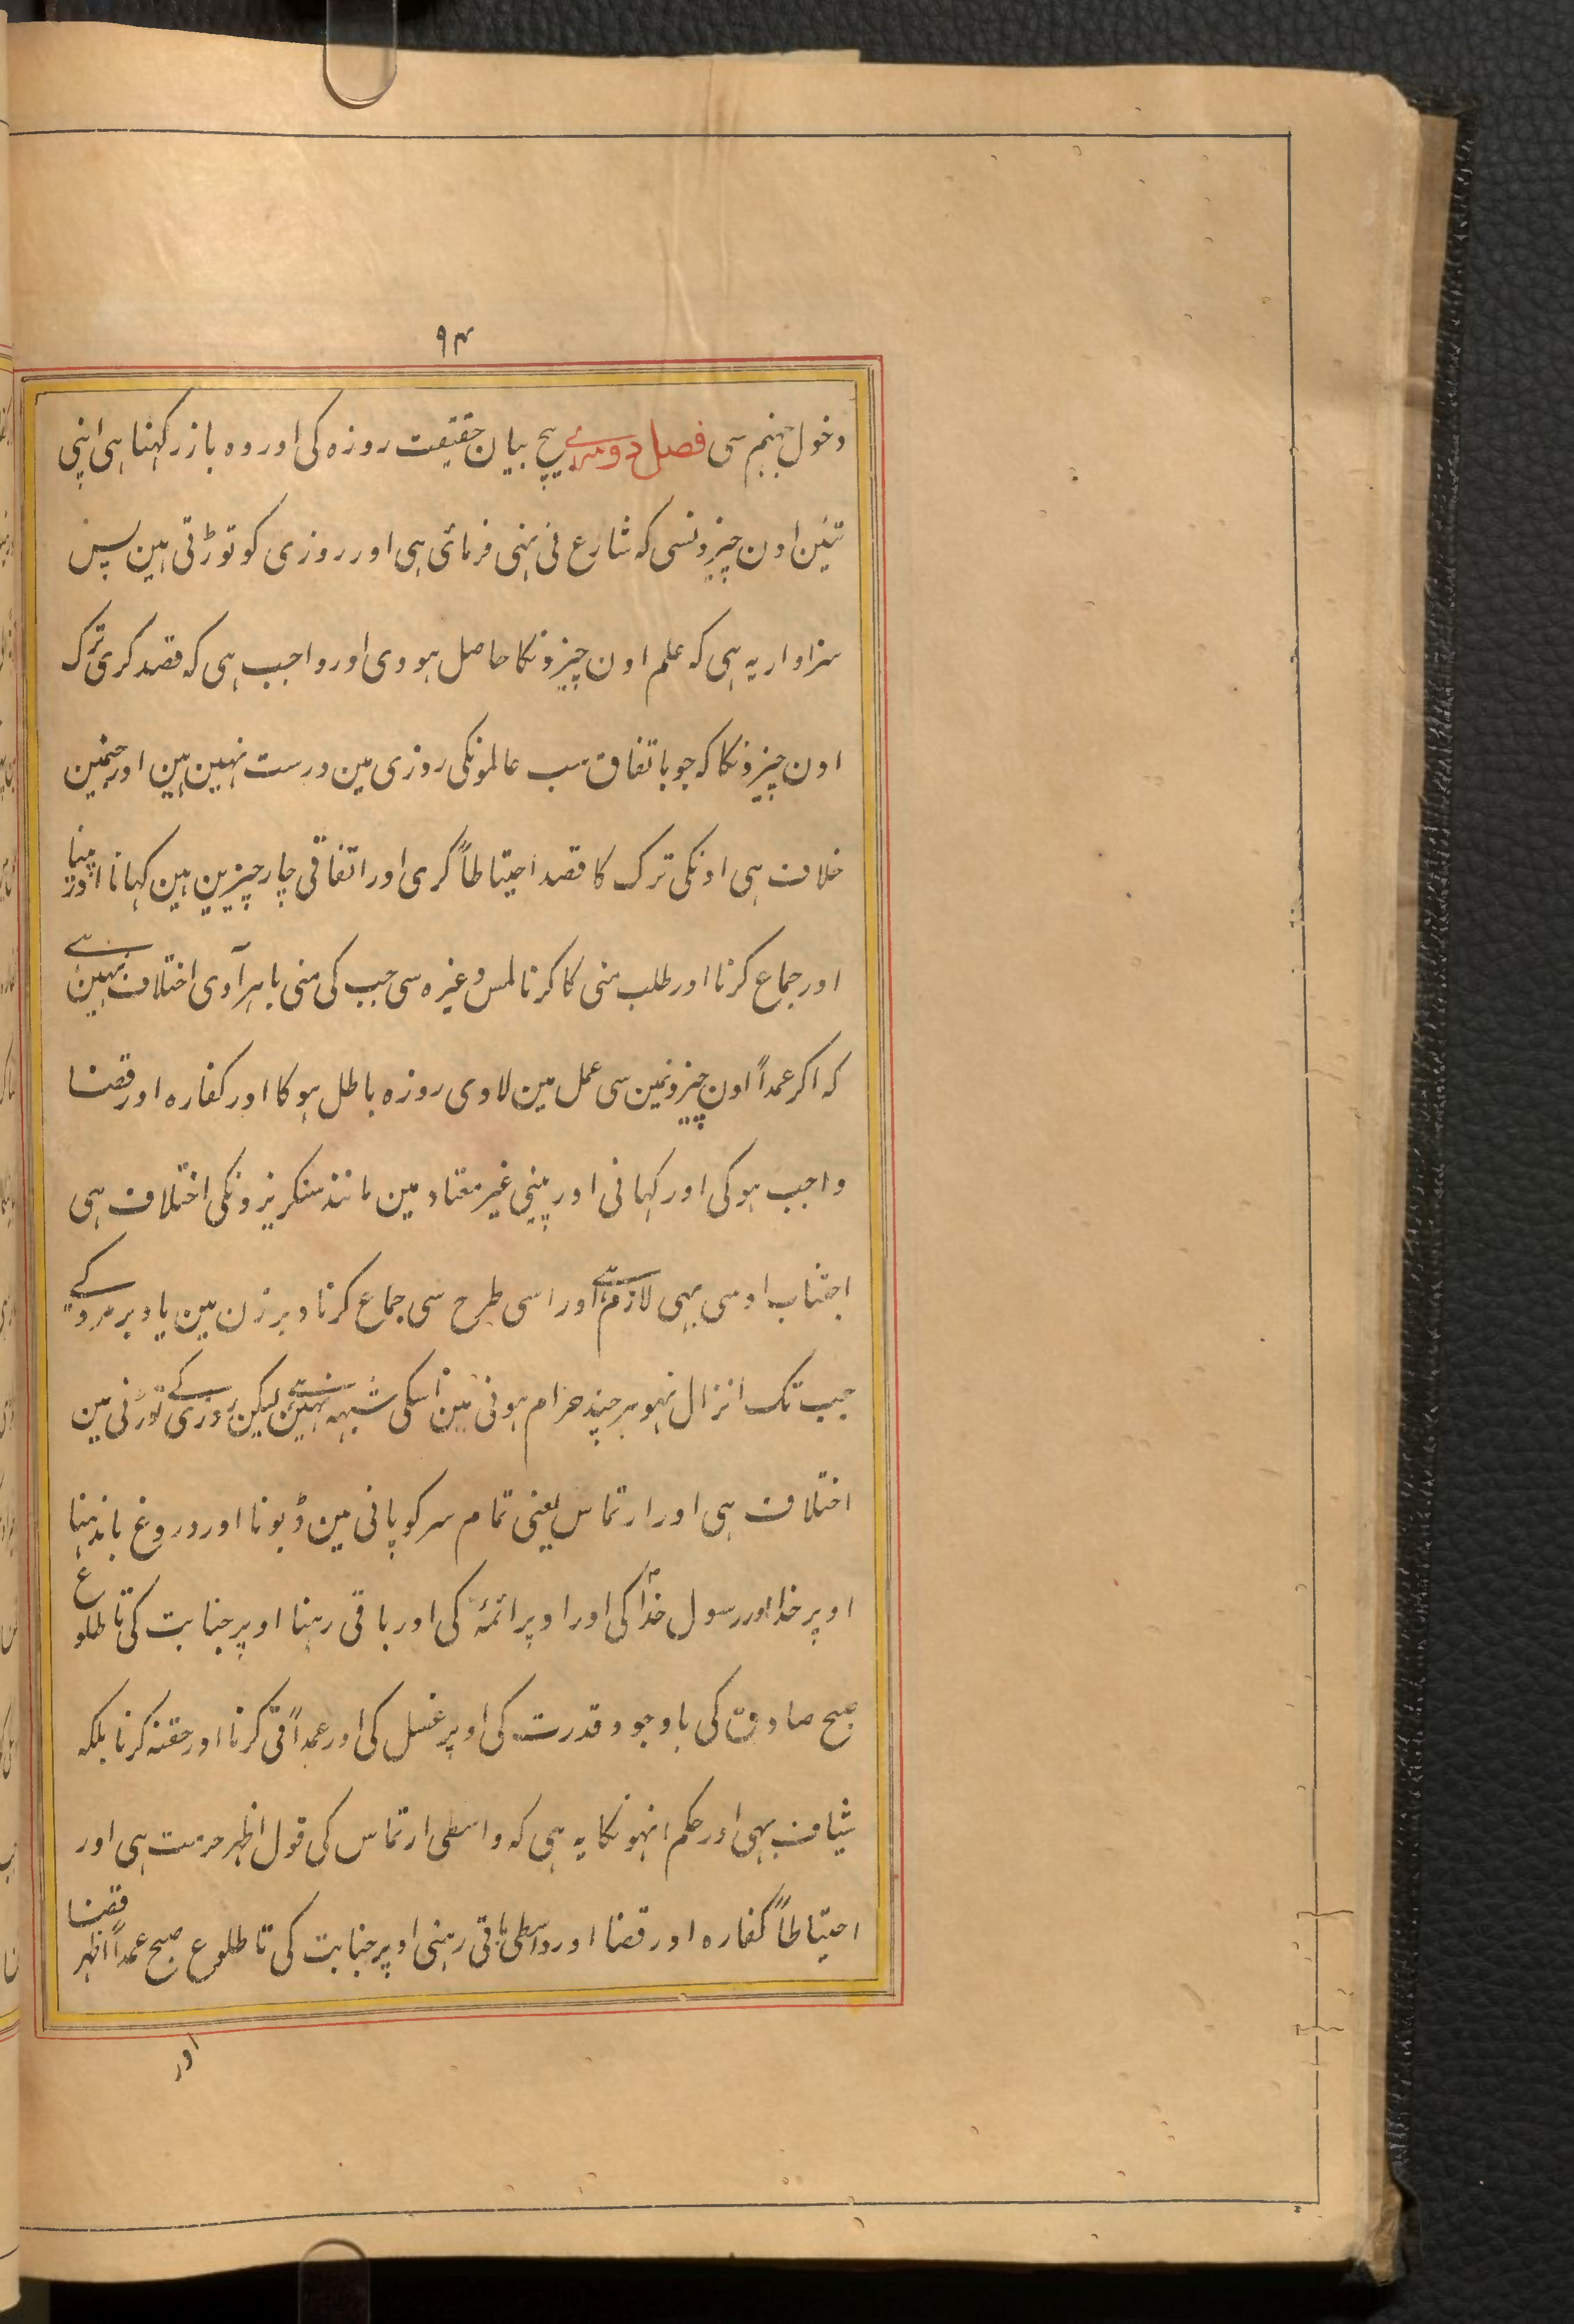 ۹۴
دخول جہنم سی فصل دوسرے بیچ بیان حقیقت روزہ کی اور وہ باز رکہنا ہی اپنی
تئین اون چیزونسی کہ شارع نی نہی فرمائی ہی اور روزی کو توڑتی ہین پس
سزاوار یہ ہی کہ علم اون چیزونکا حاصل ہووی اور واجب ہی کہ قصد کری ترک
اون چیزونکا کہ جو باتفاق سب عالمونکی روزی مین درست نہین ہین اور جنمین
خلاف ہی اونکی ترک کا قصد احتیاطاً کری اور اتفاقی چار چیزین ہین کہانا اور پینا
اور جماع کرنا اور طلب منی کا کرنا لمس وغیرہ سی جب کی منی باہر آوی اختلاف نہین ہے
کہ اکر عمداً اون چیزونمین سی عمل مین لاوی روزہ باطل ہوکا اور کفارہ اور قضا
واجب ہوکی اور کہانی اور پینی غیر معتاد مین مانند سنکریزونکی اختلاف ہی
اجتناب اوسی بہی لازم ہے اور اسی طرح سی جماع کرنا دبر زن مین یا دبر مرد کے
جب تک انزال نہو ہر چند حرام ہونی مین اسکی شبہہ نہین ہے لیکن روزی کے توڑنی مین
اختلاف ہی اور ارتماس یعنی تمام سر کو پانی مین ڈبونا اور دروغ باندہنا
اوپر خدا اور رسول خدا کی اور اوپر ائمہ کی اور باقی رہنا اوپر جنابت کی تا طلوع
صبح صادق کی باوجود قدرت کی اوپر غسل کی اور عمداً قی کرنا اور حقنہ کرنا بلکہ
شیاف بہی اور حکم انہونکا یہ ہی کہ واسطی ارتماس کی قول اظہر حرمت ہی اور
احتیاطاً کفارہ اور قضا اور واسطی باقی رہنی اوپر جنابت کی تا طلوع صبح عمداً اظہر قضا
اور